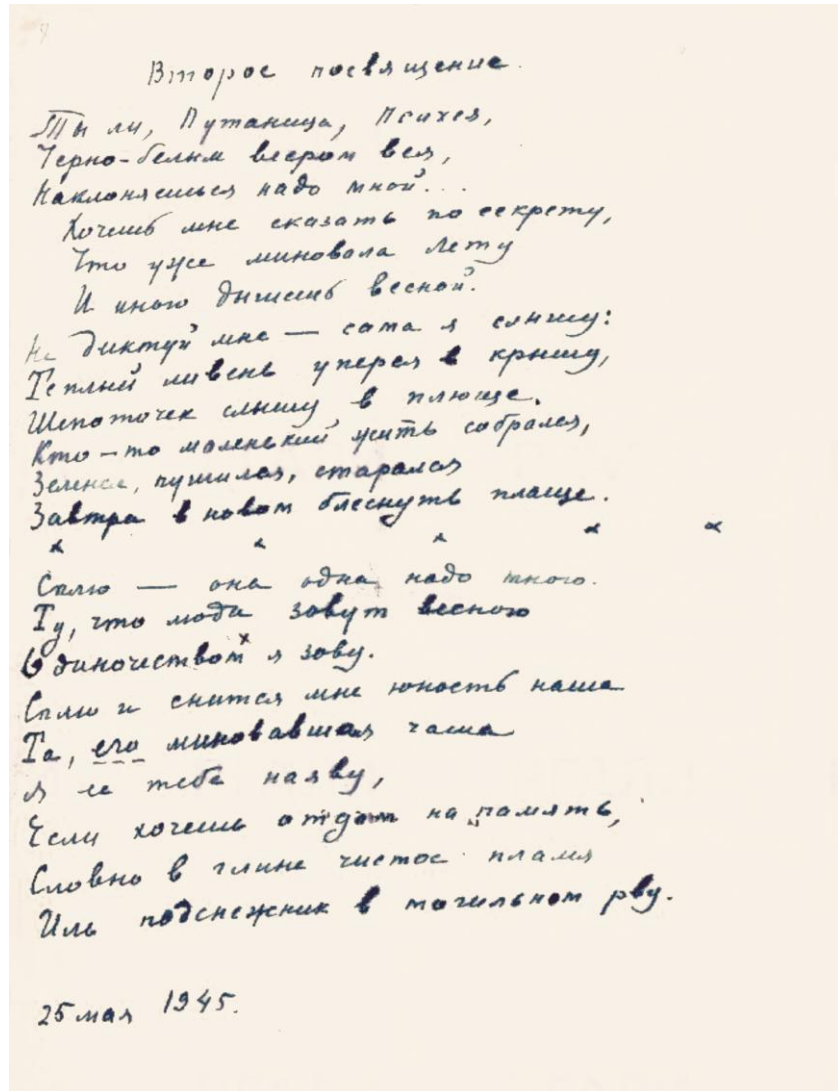 Второе посвящение.
Ты ли, Путаница, Психея,
Черно-белым веером вея,
Наклоняешься надо мной...
Хочешь мне сказать по секрету,
Что уже миновала Лету
И иною дышишь весной.
Не диктуй мне — сама я слышу:
Теплый ливень уперся в крышу,
Шепоточек слышу в плюще.
Кто-то маленький жить собрался,
Зеленел, пушился, старался
Завтра в новом блеснуть плаще.
x x x x x
Сплю — она одна надо мною.
Ту, что люди зовут весною
Одиночеством я зову.
Сплю и снится мне юность наша
Та, его миновавшая чаша
Я ее тебе наяву,
Если хочешь отдам на память,
Словно в глине чистое пламя
Иль подснежник в могильном рву.
25 мая 1945.